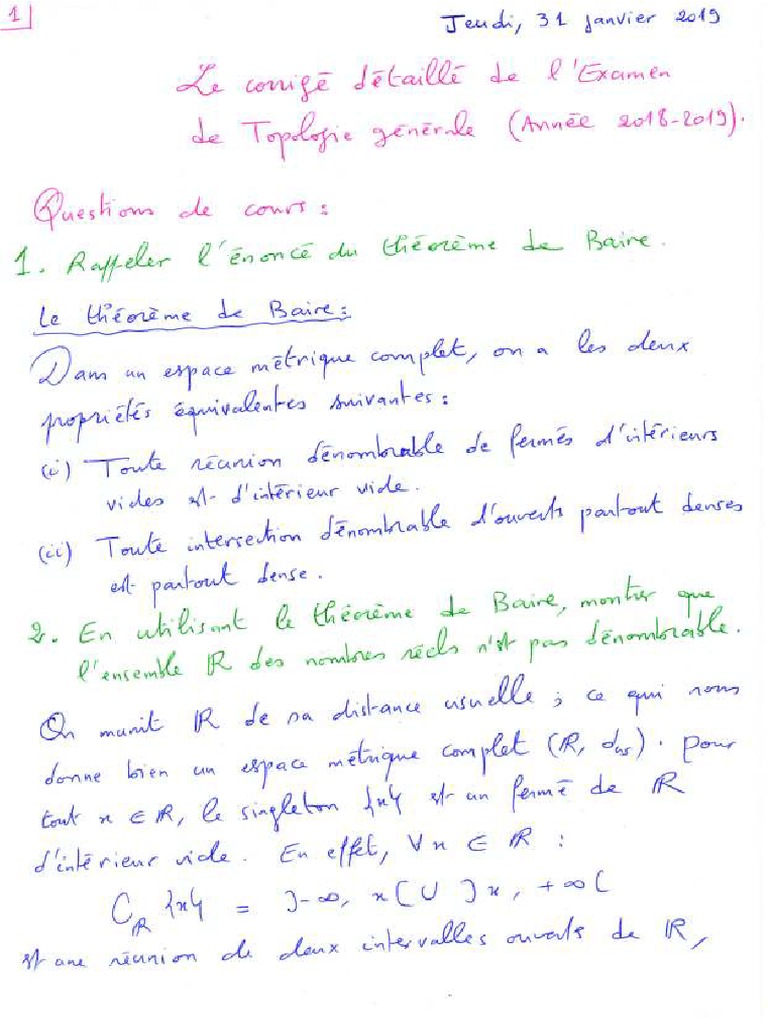 1
Jeudi, 31 janvier 2019
Le corrigé détaillé de l'Examen
de Topologie générale (Année 2018-2019).
Questions de cours :
1. Rappeler l'énoncé du théorème de Baire.
Le théorème de Baire :
Dans un espace métrique complet, on a les deux
propriétés équivalentes suivantes :
(i) Toute réunion dénombrable de fermés d'intérieurs
vides est d'intérieur vide.
(ii) Toute intersection dénombrable d'ouverts partout denses
est partout dense.
2. En utilisant le théorème de Baire, montrer que
l'ensemble ℝ des nombres réels n'est pas dénombrable.
On munit ℝ de sa distance usuelle ; ce qui nous
donne bien un espace métrique complet (ℝ, d_us). Pour
tout x ∈ ℝ, le singleton {x} est un fermé de ℝ
d'intérieur vide. En effet, ∀x ∈ ℝ :
C_ℝ {x} = ]-∞, x[ ∪ ]x, +∞[
est une réunion de deux intervalles ouverts de ℝ,